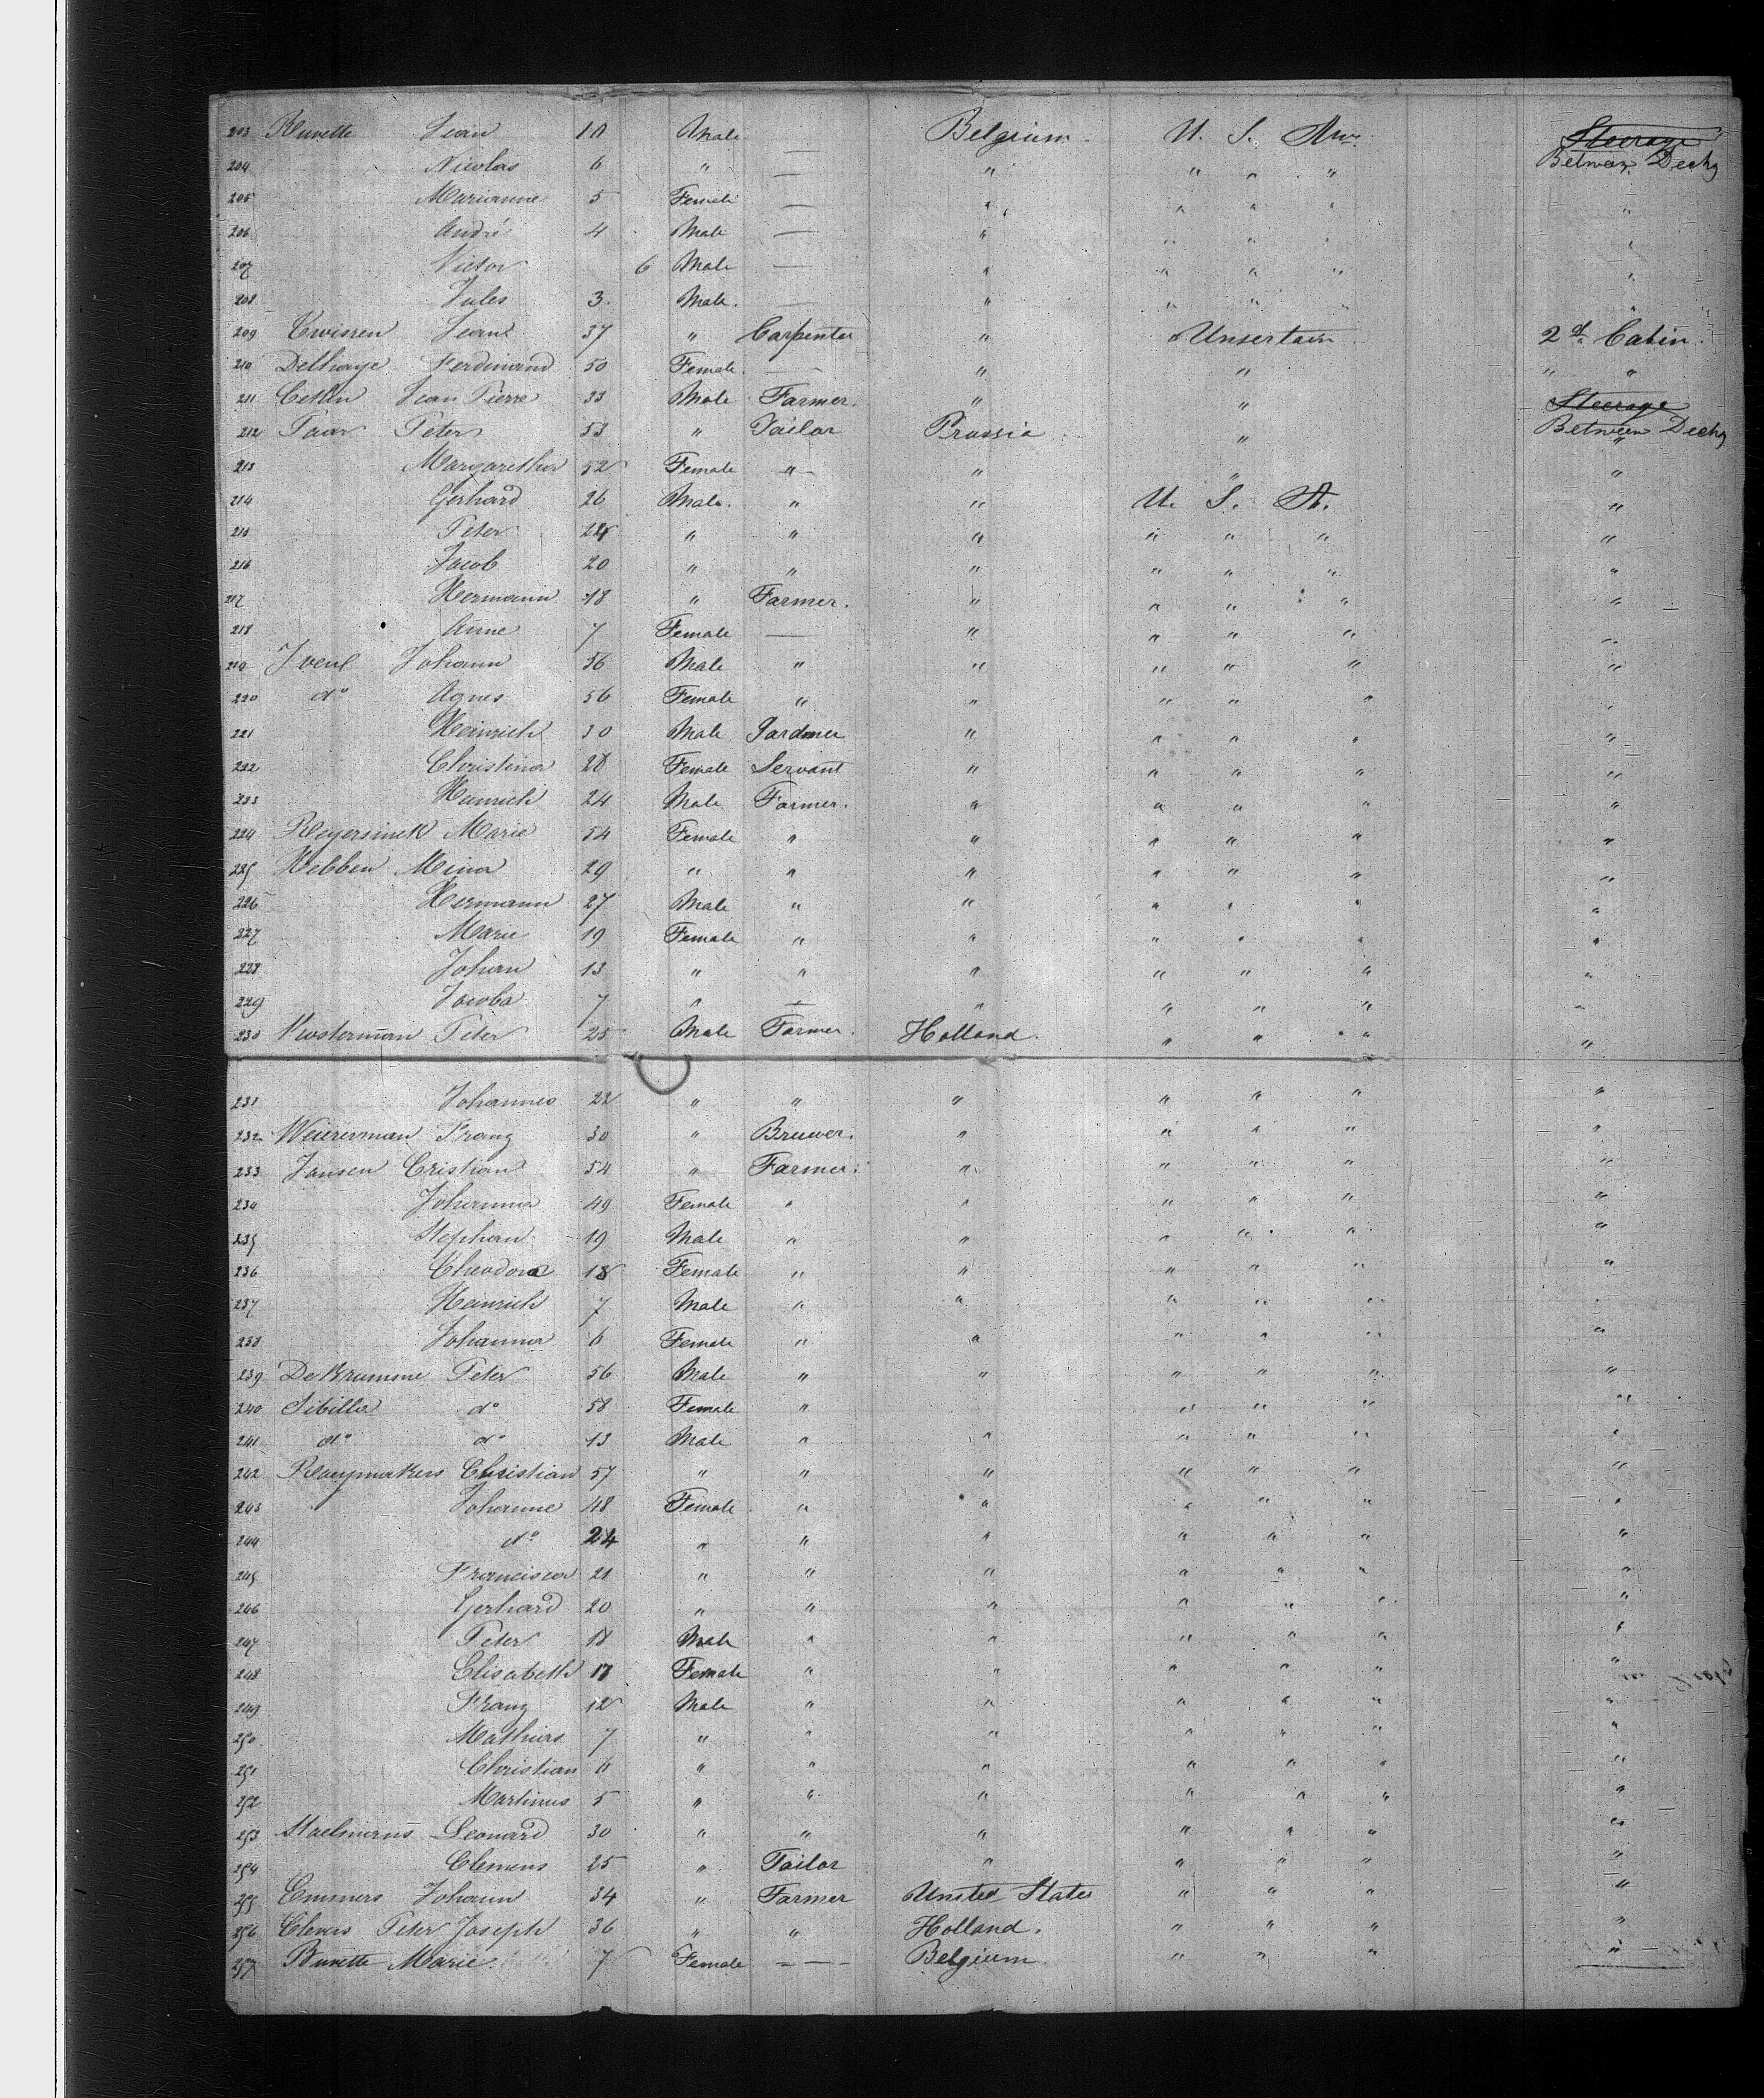 203 Jean 10 Male — Belgium. U. S. Am. Steerage
204 Nicolas 6 " — " " " " Between Decks
205 Marianne 5 Female — " " " " "
206 André 4 Male — " " " " "
207 Victor 6 Male — " " " " "
208 Jules 3. Male. — " " " " "
209 Jean 37 " Carpenter " Unsertain 2d. Cabin.
210 Delhaye Ferdinand 50 Female. — " " " "
211 Jean Pierre 33 Male Farmer. " " Steerage
212 Paar Peter 53 " Tailor Prussia " Between Decks
213 Margaretha 52 Female " " " "
214 Gerhard 26 Male. " " U. S. A. "
215 Peter 24 " " " " " " "
216 Jacob 20 " " " " " " "
217 Hermann 18 " Farmer. " " " " "
218 Anne 7 Female — " " " " "
219 Johann 56 Male " " " " " "
220 do Agnes 56 Female " " " " " "
221 Heinrich 30 Male Gardner " " " " "
222 Christina 28 Female Servant " " " " "
223 Heinrich 24 Male Farmer. " " " " "
224 Marie 54 Female " " " " " "
225 Hebben Mina 29 " " " " " " "
226 Hermann 27 Male " " " " " "
227 Marie 19 Female " " " " " "
228 Johan 13 " " " " " " "
229 Jacoba 7 " — " " " " "
230 Kosterman Peter 25 Male Farmer. Holland. " " " "
231 Johannes 22 " " " " " " "
232 Weierman Franz 30 " Bruwer. " " " " "
233 Jansen Cristian 54 " Farmer. " " " " "
234 Johanna 49 Female " " " " " "
235 Stephan 19 Male " " " " " "
236 Theodora 18 Female " " " " " "
237 Heinrich 7 Male " " " " " "
238 Johanna 6 Female " " " " " "
239 De Krumme Peter 56 Male " " " " " "
240 Sibilla do 58 Female " " " " "
241 do do 13 Male " " " " " "
242 Raymakers Christian 57 " " " " " " "
243 Johanne 48 Female " " " " " "
244 do 24 " " " " " " "
245 Francisca 21 " " " " " " "
246 Gerhard 20 " " " " " " "
247 Peter 18 Male " " " " " "
248 Elisabeth 17 Female " " " " " "
249 Franz 12 Male " " " " " "
250 Mathias 7 " " " " " " "
251 Christian 6 " " " " " " "
252 Martinus 5 " " " " " " "
253 Staelmans Leonard 30 " " " " " " "
254 Clemens 25 " Tailor " " " " "
255 Emmers Johann 34 " Farmer United States " " " "
256 Clevers Peter Joseph 36 " " Holland. " " " "
257 Marie 7 Female — Belgium " " " "